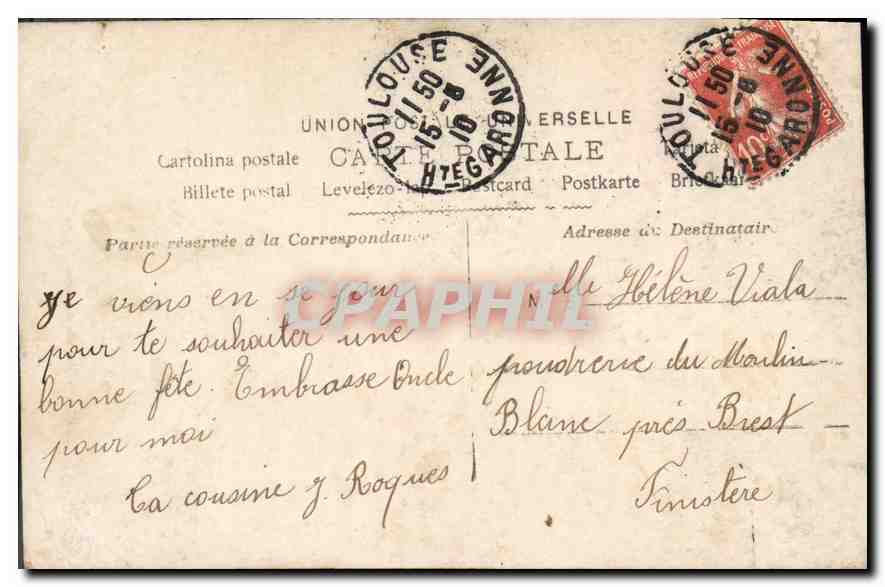 TOULOUSE
11 50
15 - 8
10
Hte GARONNE
TOULOUSE
11 50
15 - 8
10
Hte GARONNE
UNION POSTALE UNIVERSELLE
Cartolina postale CARTE POSTALE
Billete postal Levelezo-lap Postcard Postkarte Briefkaart
Partie réservée à la Correspondance
Je viens en se jour
pour te souhaiter une
bonne fête. Embrasse Oncle
pour moi
Ta cousine J. Roques
Adresse du Destinataire
Melle Hélène Viala
poudrerie du Moulin
Blanc prés Brest
Finistère
CPAPHIL